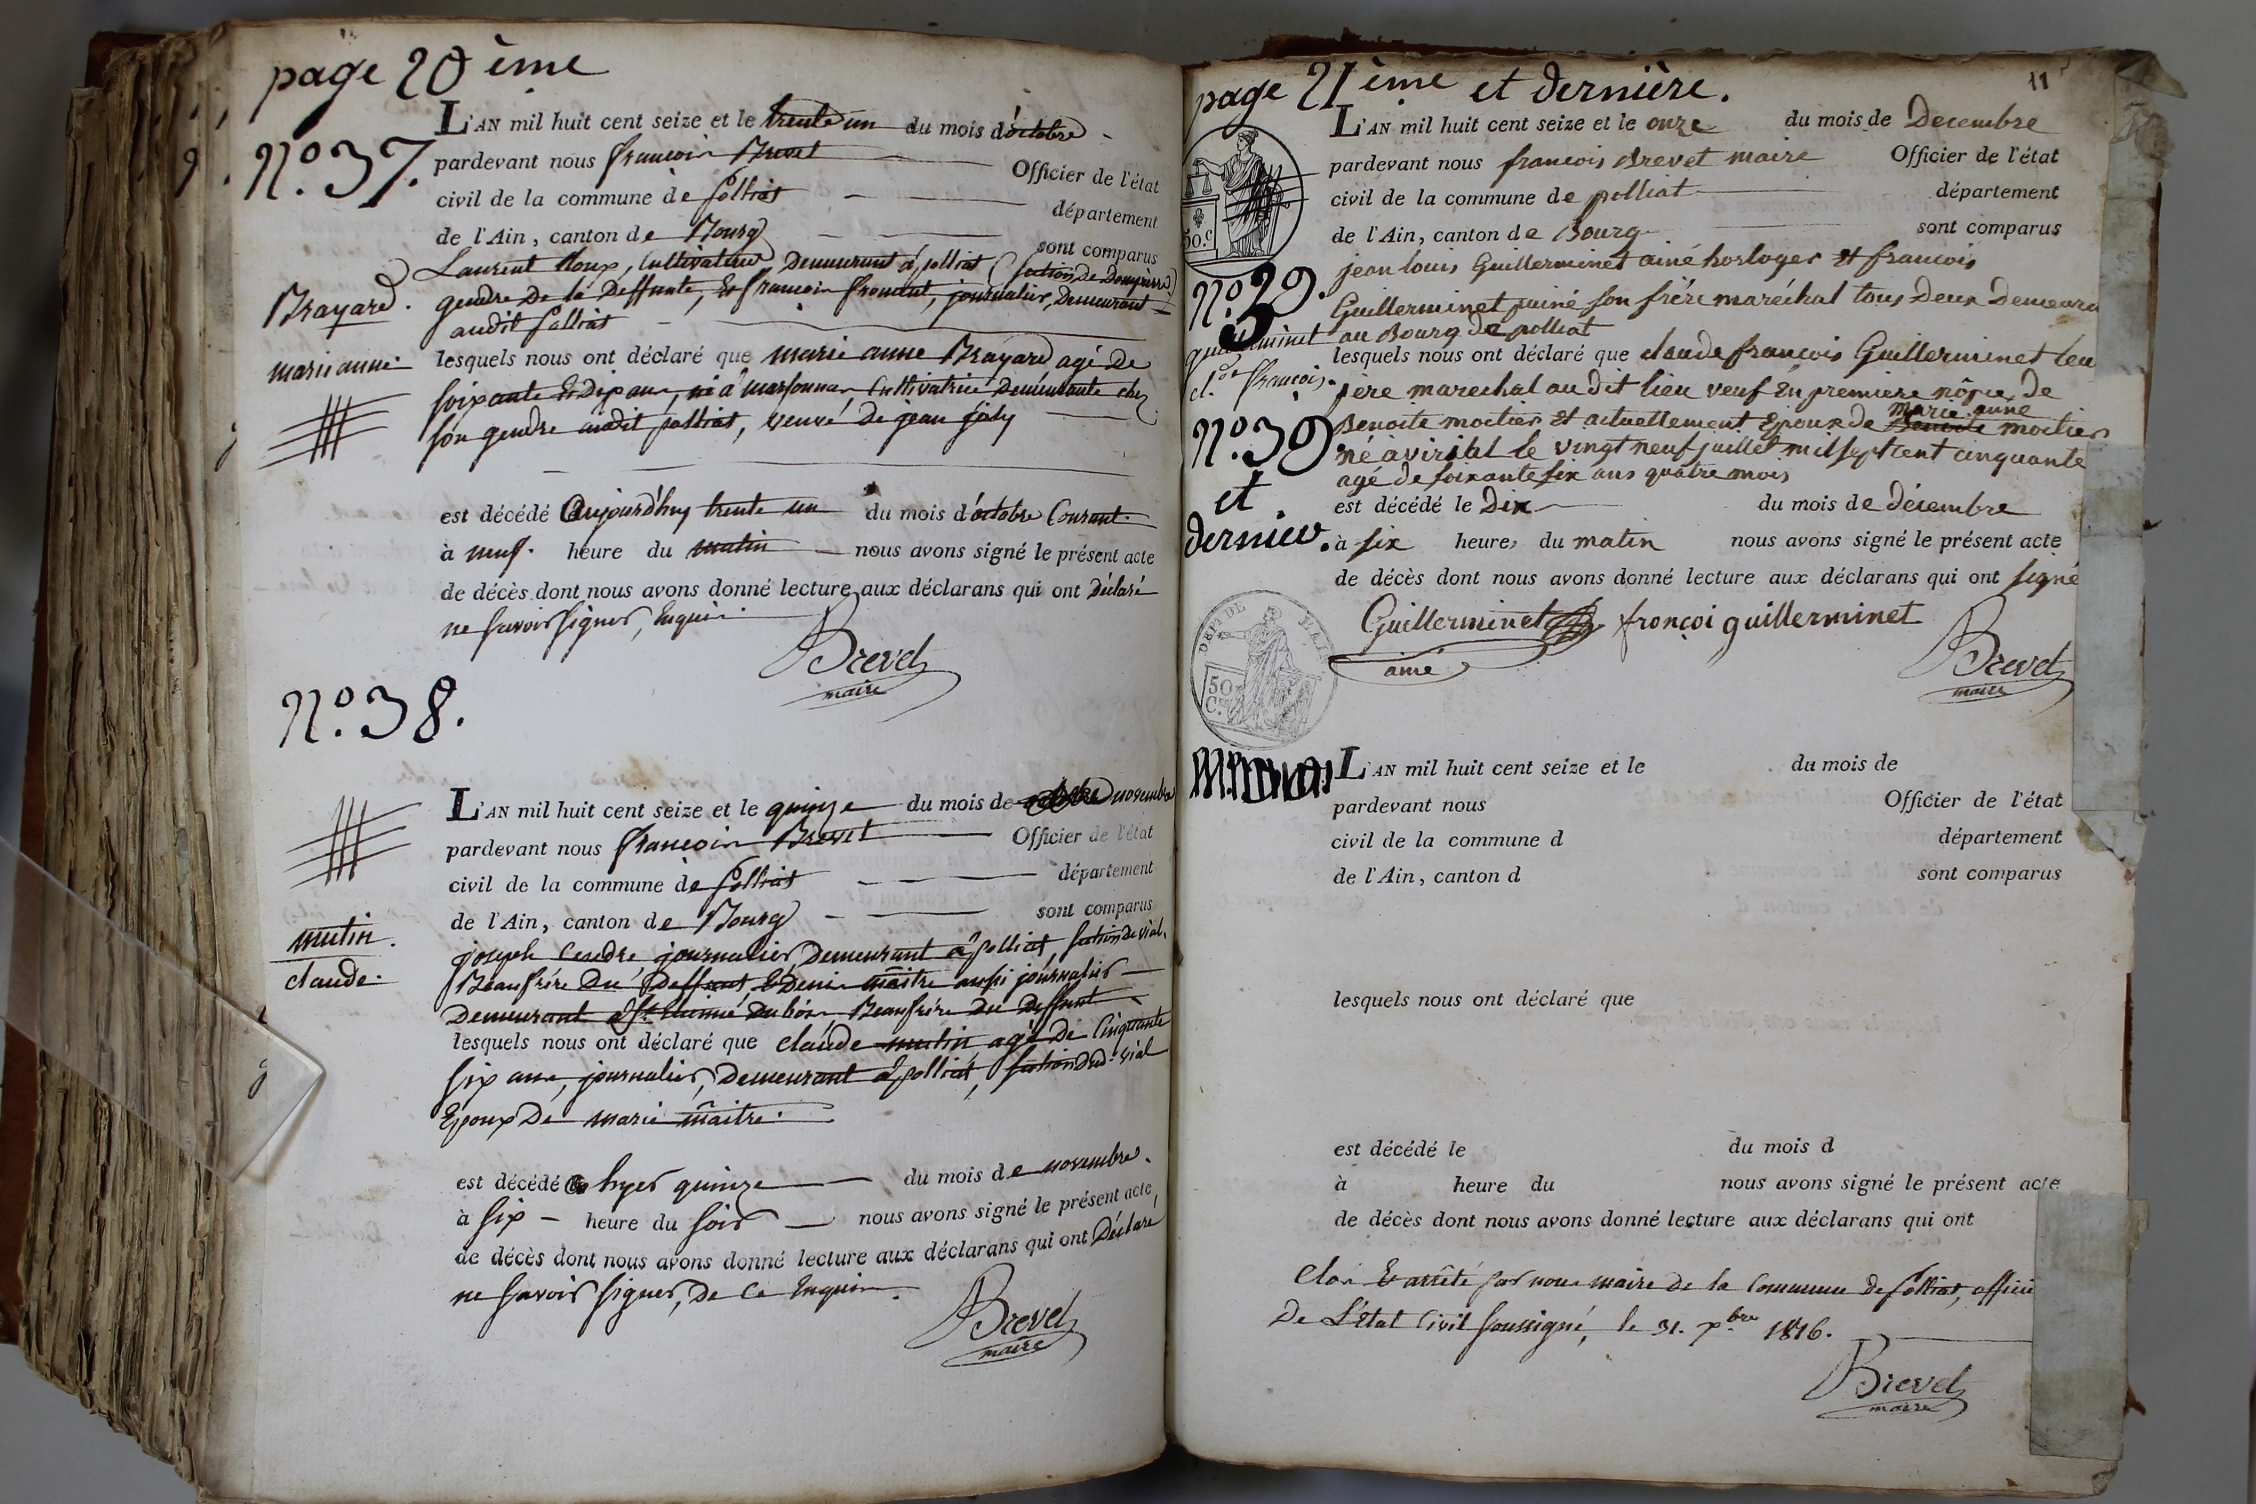 page 20 ème
N.º 37.
L'AN mil huit cent seize et le trente un du mois d'octobre
pardevant nous françois Brevet Officier de l'état
civil de la commune de polliat département
de l'Ain, canton de Bourg sont comparus
Laurent Loup, Cultivateur, Demeurant à polliat (section de Dompierre)
gendre De la Deffunte, & françois froment, journalier, Demeurant
audit polliat
Brayard.
marie anne.
lesquels nous ont déclaré que marie anne Brayard agé de
soixante & dix ans, né à marsonnas Cultivatrice Demeurante chez
son gendre audit polliat, veuve de jean joly
est décédé aujourd'huy trente un du mois d'octobre Courant.
à neuf. heure du matin nous avons signé le présent acte
de décès dont nous avons donné lecture aux déclarans qui ont Déclaré
ne savoir signer, Enquis.
Brevet
maire
N.º 38.
L'AN mil huit cent seize et le quinze du mois de novembre
pardevant nous françois Brevet Officier de l'état
civil de la commune de polliat département
de l'Ain, canton de Bourg sont comparus
mutin.
claude.
joseph Cendre journalier, Demeurant à polliat, section de vial.
Beaufrére Du Deffunt & Denis maitre aussi journalier
Demeurant à St. Etienne Dubois Beaufrére du Deffunt
lesquels nous ont déclaré que claude mutin agé De Cinquante
six ans, journalier, Demeurant à polliat, section dud. vial
Epoux De marie maitre.
est décédé hyer quinze du mois de novembre.
à six heure du soir nous avons signé le présent acte,
de décès dont nous avons donné lecture aux déclarans qui ont Déclaré
ne savoir signer, De Ce Enquis.
Brevet
maire
page 21 ème et dernière.
11
L'AN mil huit cent seize et le onze du mois de Decembre
pardevant nous françois Brevet maire Officier de l'état
civil de la commune de polliat département
de l'Ain, canton de Bourg sont comparus
50.c
jean louis Guillerminet ainé horloger et françois
N.º 39.
Guillerminet puiné son frére maréchal tous deux Demeura
au Bourg de polliat
guillerminet
cl.de françois.
lesquels nous ont déclaré que claude françois Guillerminet leu
père marechal au dit lieu veuf en premiere nôçe de
N.º 39
et
dernier.
Benoite moitier et actuellement Epoux de Benoite marie anne moitier
né à viriat le vingt neuf juillet mil sept cent cinquante
agé de soixante six ans quatre mois
est décédé le Dix du mois de décembre
à six heures du matin nous avons signé le présent acte
de décès dont nous avons donné lecture aux déclarans qui ont signé
DEPT DE L'AIN
50
C.
Guillerminet françoi guillerminet
ainé
Brevet
maire
L'AN mil huit cent seize et le du mois de
pardevant nous Officier de l'état
civil de la commune d département
de l'Ain, canton d sont comparus
lesquels nous ont déclaré que
est décédé le du mois d
à heure du nous avons signé le présent acte
de décès dont nous avons donné lecture aux déclarans qui ont
Clos & arrêté par nous maire de la Commune de polliat, officie
De L'état Civil soussigné, le 31. Xbre 1816.
Brevet
maire